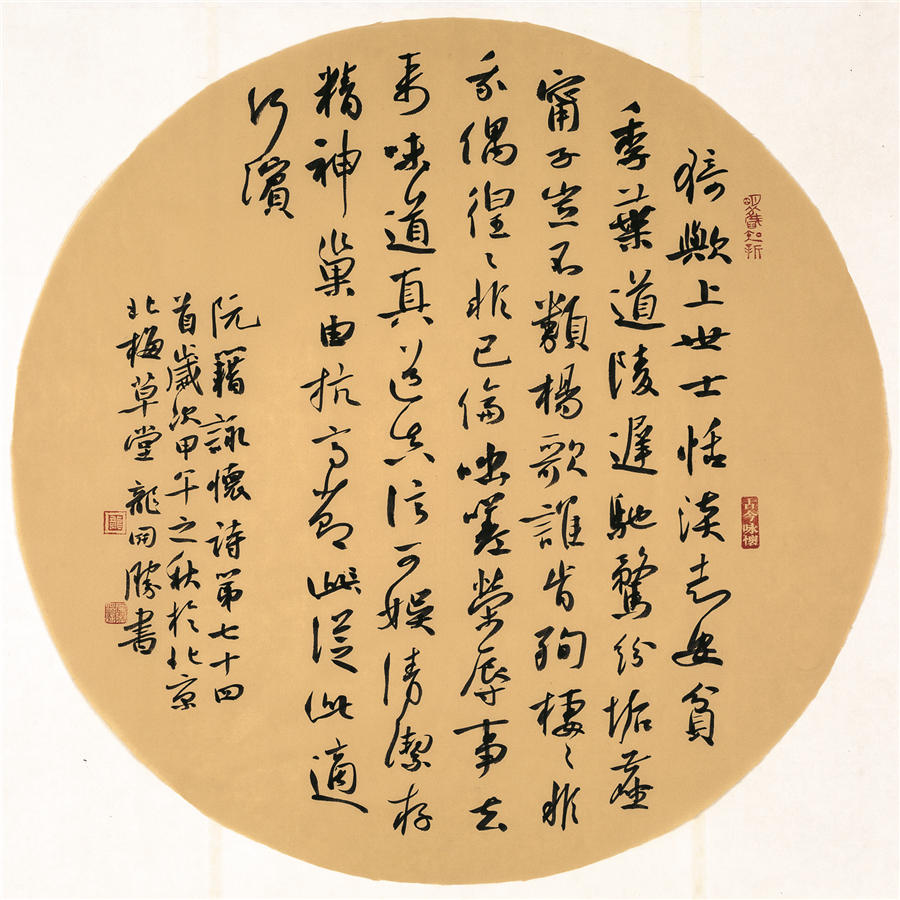 猗歟上世士恬淡志安貧
季葉道陵遲馳騖紛垢塵
甯子豈不類楊歌誰肯殉棲〻非
我偶徨〻非己倫咄嗟榮辱事去
来味道真道真信可娛清潔存
精神巢由抗高節從此適
河濱
阮籍詠懷詩第七十四
首歲次甲午之秋於北京
北梅草堂龍開勝書
古今咏懷